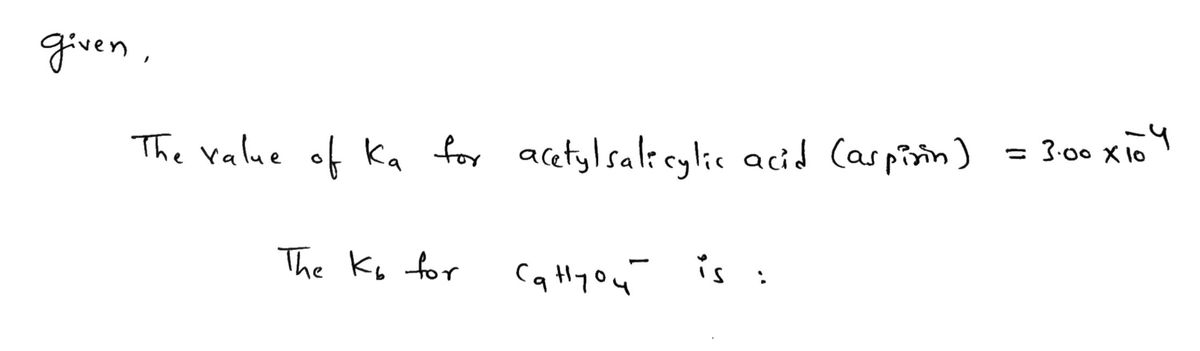 given,
The value of Ka for acetylsalicylic acid (aspirin) = 3.00 x 10⁻⁴
The Kb for C9H7O4⁻ is :